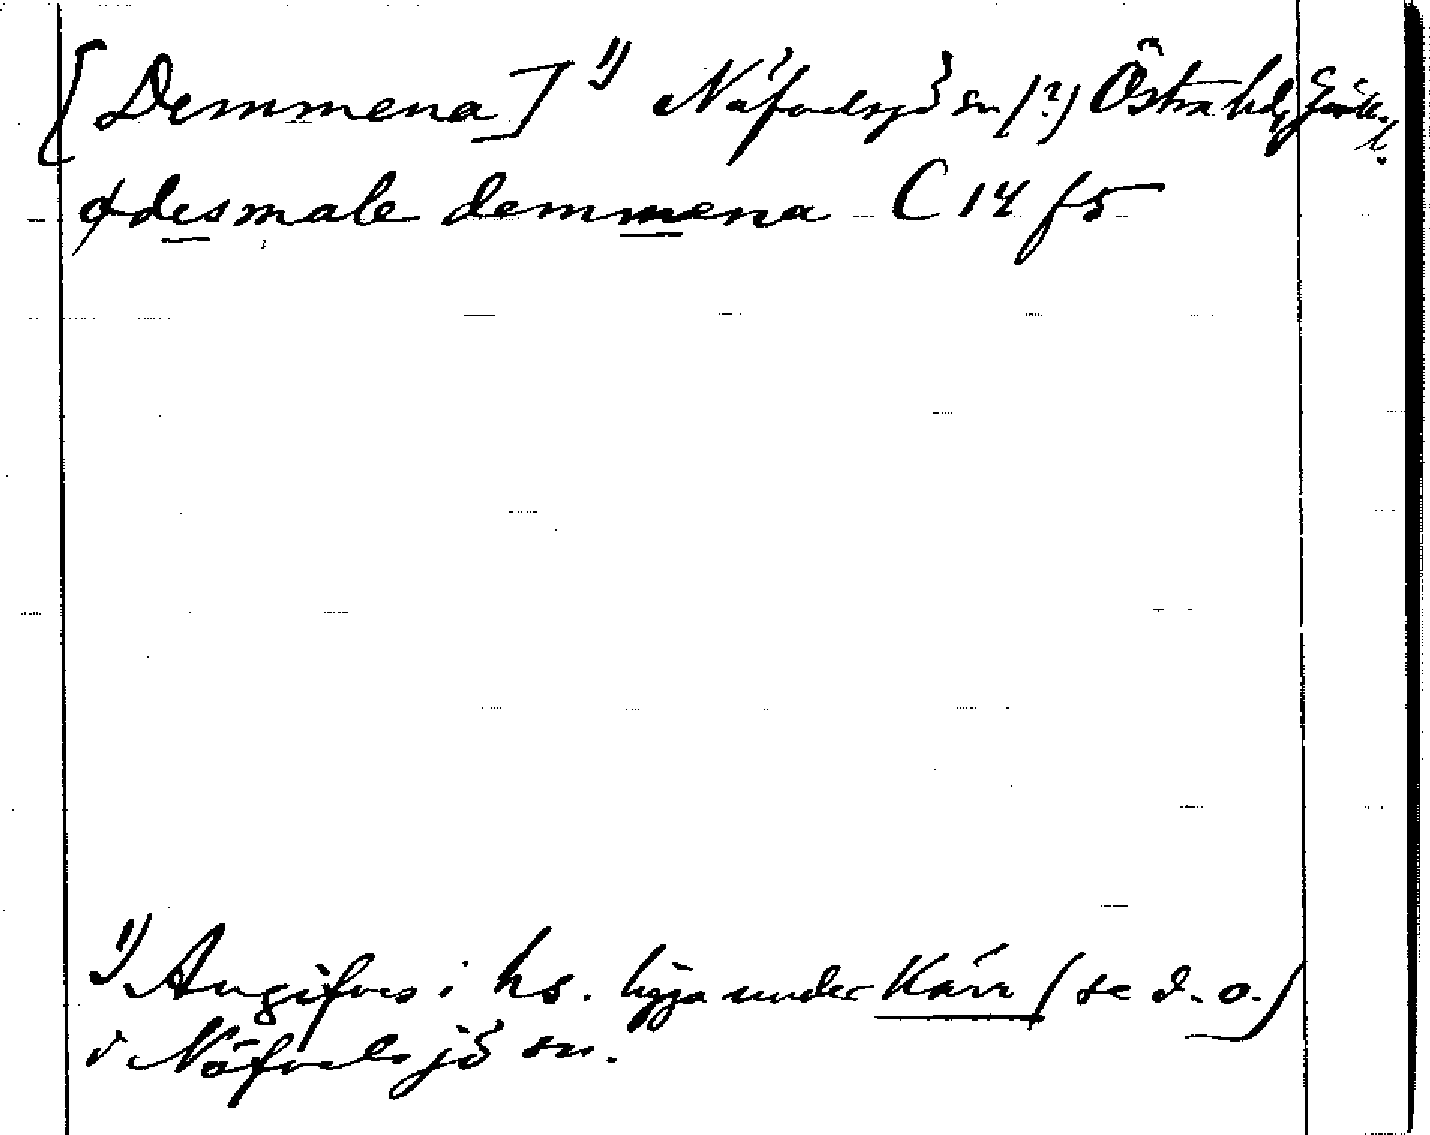 [Demmena] 1) Näfvelsjö sn (?) Östra hd, Jönk. l.
ɸ desmale demmena C 14 f 5
1) Angifves i hs. ligga under Kärr (se d. o.)
i Näfvelsjö sn.